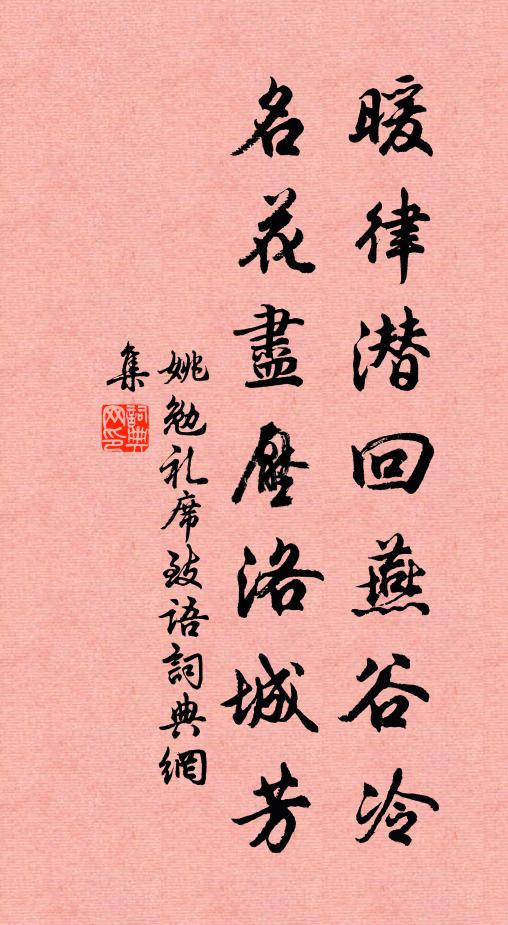 暖律潜回燕谷冷
名花盡壓洛城芳
姚勉礼席致语詞典網
集
詞典网印